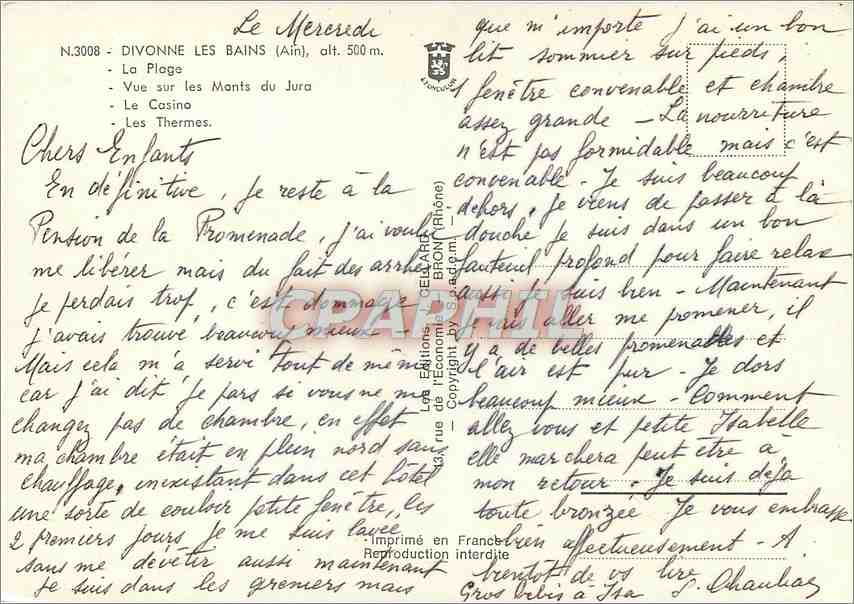 Le Mercredi
N.3008 - DIVONNE LES BAINS (Ain), alt. 500 m.
- La Plage
- Vue sur les Monts du Jura
- Le Casino
- Les Thermes.
Chers Enfants
En définitive, je reste à la
Pension de la Promenade, j'ai voulu
me libérer mais du fait des arrhes
je perdais trop, c'est dommage
j'avais trouvé beaucoup mieux -
Mais cela m'a servi tout de même
car j'ai dit je pars si vous ne me
changez pas de chambre, en effet
ma chambre était en plein nord sans
chauffage, inexistant dans cet hôtel
une sorte de couloir petite fenêtre, les
2 premiers jours je me suis lavée
sans me dévêtir aussi maintenant
je suis dans les greniers mais
que m'importe j'ai un bon
lit sommier sur pieds,
1 fenêtre convenable et chambre
assez grande - La nourriture
n'est pas formidable mais c'est
convenable - Je suis beaucoup
dehors, je viens de passer à la
douche je suis dans un bon
fauteuil profond pour faire relax
aussi je suis bien - Maintenant
je vais aller me promener, il
y a de belles promenades et
l'air est pur - Je dors
beaucoup mieux - Comment
allez vous et petite Isabelle
elle marchera peut être à
mon retour - Je suis déjà
toute bronzée Je vous embrasse
bien affectueusement - A
bientôt de vs lire
Gros bibis à Isa
AVONCOLOR
Les Editions CELLARD
13, rue de l'Economie - BRON (Rhône)
— Copyright by S.p.a.d.e.m. —
Imprimé en France
Reproduction interdite
CPAPHIL